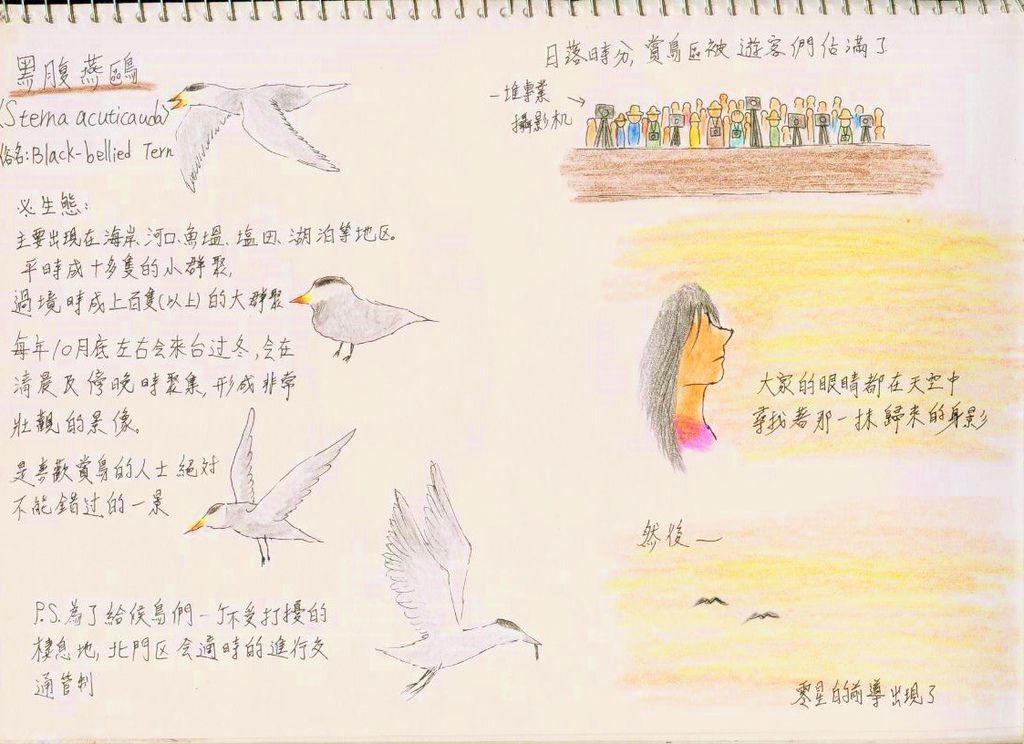 黑腹燕鷗
(Sterna acuticauda)
俗名:Black-bellied Tern
生態:
主要出現在海岸、河口、魚塭、塩田、湖泊等地区。
平時成十多隻的小群聚,
過境時成上百隻(以上)的大群聚
每年10月底左右会來台过冬,会在
清晨及傍晚時聚集,形成非常
壯觀的景像。
是喜歡賞鳥的人士絕对
不能錯过的一景
P.S.為了給候鳥們一个不受打擾的
棲息地,北門区会適時的進行交
通管制
日落時分,賞鳥區被遊客們佔滿了
一堆專業
攝影机
大家的眼睛都在天空中
尋找著那一抹歸來的身影
然後—
零星的前導出現了